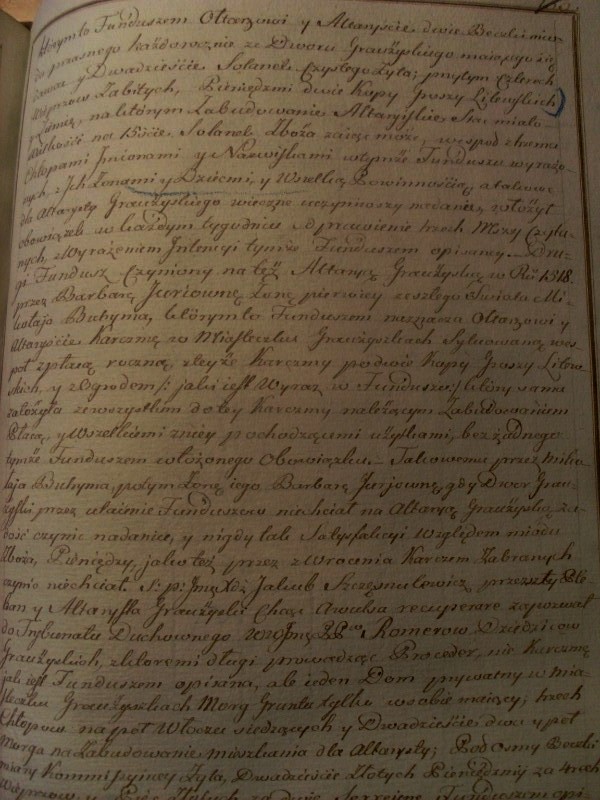 którymto Funduszem Ołtarzowi y Altaryście dwie Beczki miar
do przasnego każdorocznie ze Dworu Graużyskiego maiącego się
dawać y Dwadzieścia Solanek Czystego Żyta; przytym czterech
Wieprzow Zabitych, Pieniędzmi dwie Kopy Groszy Litewskich
y Ziemię, na którym Zabudowanie Altaryiskie Stać miało
na 15ście Solanek Zboża zasiać może, wespoł z ośmu
Chłopami Jmionami y Nazwiskami wtymże Funduszu wyrażo-
nych, z Jch Żonami y Dziećmi, y Wszelką Powinnością, a takowe
dla Altarysty Graużyskiego wieczne uczyniwszy nadanie, włożył
obowiązek w każdym tygodniu odprawienie trzech Mszy Czyta-
nych, z Wyrażeniem Intencyi tymże Funduszem opisaney. Dru-
gi Fundusz Czyniony na też Altaryą Graużyską w Rü 1518.
przez Barbarę Juriownę Żonę pierwiey zeszłego Swiata Mi-
kołaja Butryma, którymto Funduszem naznacza Ołtarzowi y
Altaryście Karczmę w Miasteczku Graużyszkach Sytuowaną wes-
poł zpłacą roczną, zteyże Karczmy po dwie Kopy Groszy Litew-
skich, y z Ogrodem /: jaki iest Wyraz w Funduszu :/ który sama
założyła ze wszystkim do tey Karczmy należącym Zabudowaniem
Placu, y Wszelkiemi z niey pochodzącemi użytkami, bez żadnego
tymże Funduszem włożonego Obowiązku. Takowemu przez Miko-
łaja Butryma, potym Żonę iego Barbarę Jurjownę, gdy Dwor Grau-
żyski przez ułaienie Funduszow niechciał na Altaryą Graużyską za-
dość czynić nadanie, y nigdy tak Satysfakcyi względem miodu
Zboża, Pieniędzy, jako też przez zwrocenia Karczem Zabranych
czynić niechciał. S: p: Jmę Xdz Jakub Szczęsnulewicz przeszły Ple-
ban y Altarysta Graużyski Chcąc Awulsa recuperare zapozwał
do Trybunału Duchownego Romerow Dziedzicow
Graużyskich, z ktoremi długi prowadząc Proceder, nie Karczmę
jak iest Funduszem opisana, ale ieden Dom prywatny w mia-
steczku Graużyszkach Morg Gruntu tylko w sobie maiący; trzech
Chłopow na puł Włoczu siedzących y Dwadzieście dwa y puł
Morga na Zabudowanie mieszkania dla Altarysty; Pod osmy Beczki
miary Kommissyiney Żyta, Dwadzieście Złotych Pieniędzmi za 4rech
Wieprzow, y Pięć Złotych za dwie Funduszem opi-